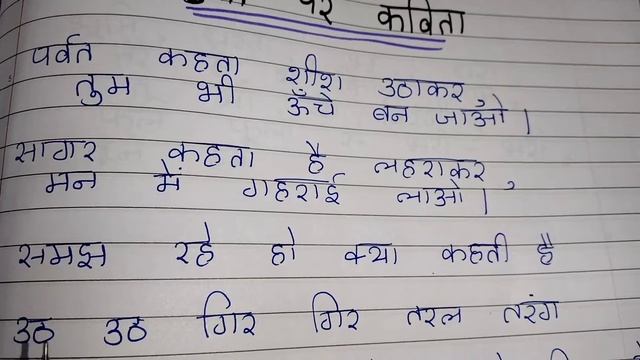 पर कविता
पर्वत कहता शीश उठाकर
तुम भी ऊँचे बन जाओ।
सागर कहता है लहराकर,
मन में गहराई लाओ।
समझ रहे हो क्या कहती है
उठ उठ गिर गिर तरल तरंग